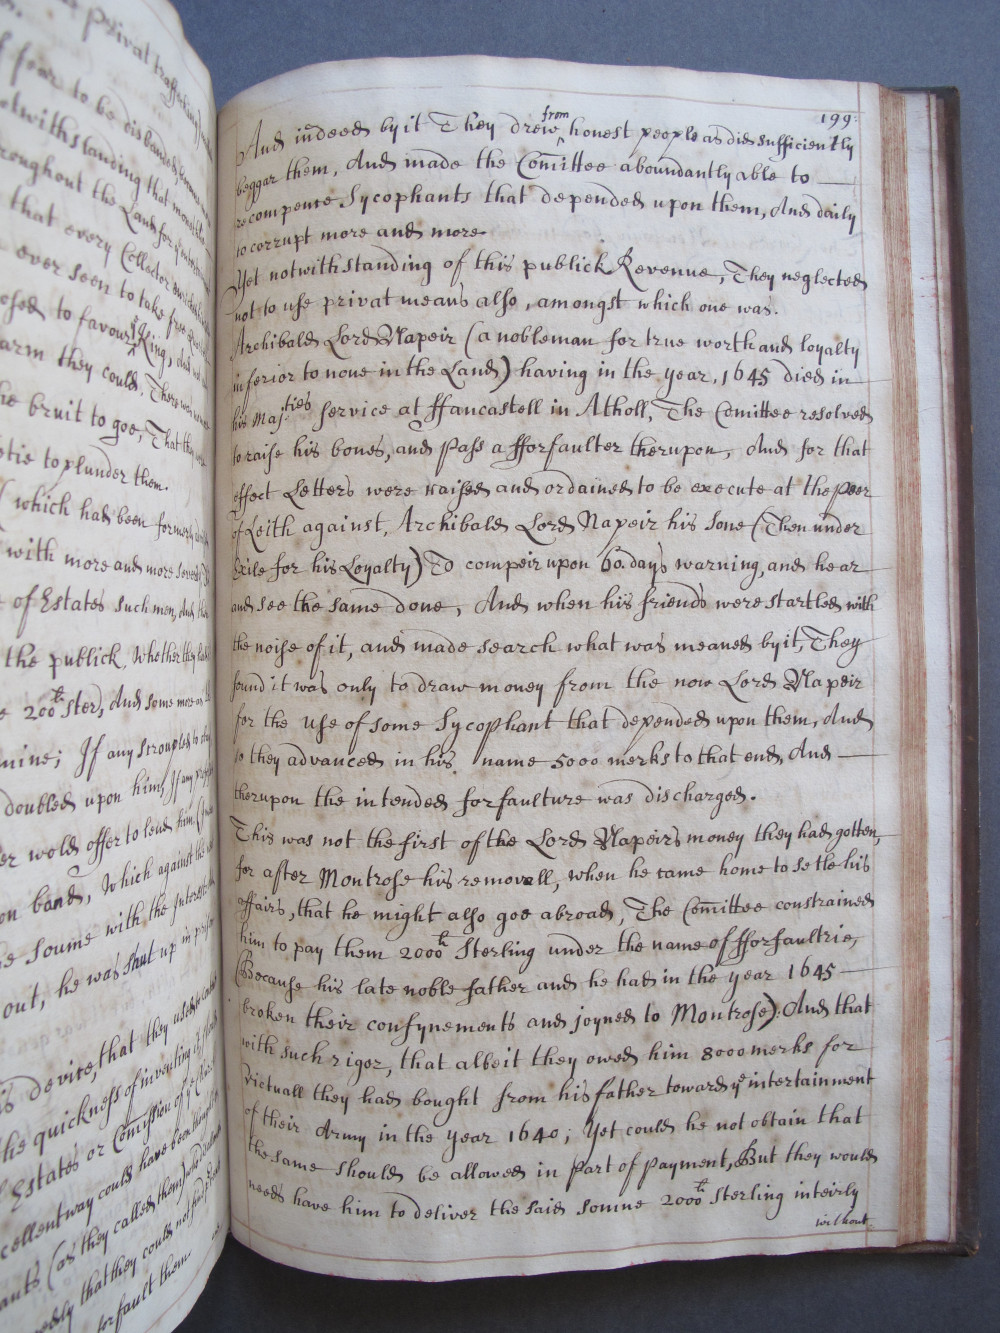 privat trafficking
fear to be disbanded,
notwithstanding that
throughout the Land for
that every Collector
ever seen to take free
to favour yᵉ King, And
arm they could, There
the bruit to goe, That they
to plunder them.
(which had been formerly
with more and more
of Estates such men, And
the publick, Whether they
200ˡⁱ Ster, And some more
If any scroupled to
doubled upon him, If any
wold offer to lend him
on band, Which against the
soume with the Interest
out, he was shut up in prison
device, that they used to
the quickness of inventing it,
Estates or Comission of yᵉ
could have been
(as they called them)
that they could not find
forfault them
199:
And indeed by it They drew ^from honest people as did sufficiently
beggar them, And made the Com̄ittee aboundantly able to
recompence Sycophants that depended upon them, And daily
to corrupt more and more.
Yet notwithstanding of this publick Revenue, They neglected
not to use privat means also, amongst which one was.
Archibald Lord Napeir (a nobleman for true worth and loyalty
inferior to none in the Land) having in the year, 1645 died in
his Maj:ties service at ffancastell in Atholl, The Comittee resolved
to raise his bones, and pass a fforfaulter therupon, And for that
effect Letters were raised and ordained to be execute at the peer
of Leith against, Archibald Lord Napeir his Sone (Then under
Exile for his Loyalty) To compeir upon 60. days warning, and hear
and see the same done, And when his friends were startled with
the noise of it, and made search what was meaned by it, They
found it was only to draw money from the now Lord Napeir
for the use of some Sycophant that depended upon them, And
so they advanced in his name 5000 merks to that end, And
therupon the intended forfaulture was discharged.
This was not the first of the Lord Napeirs money they had gotten,
for after Montrose his removall, when he came home to setle his
affairs, that he might also goe abroad, The Com̄ittee constrained
him to pay them 2000ˡⁱ Sterling under the name of fforfaultrie,
(Because his late noble father and he had in the year 1645
broken their confynements and joyned to Montrose): And that
with such rigor, that albeit they owed him 8000 merks for
Victuall they had bought from his father toward yᵉ intertainment
of their Army in the year 1640; yet could he not obtain that
the same should be allowed in part of payment, But they would
needs have him to deliver the said soume 2000ˡⁱ Sterling inteirly
without